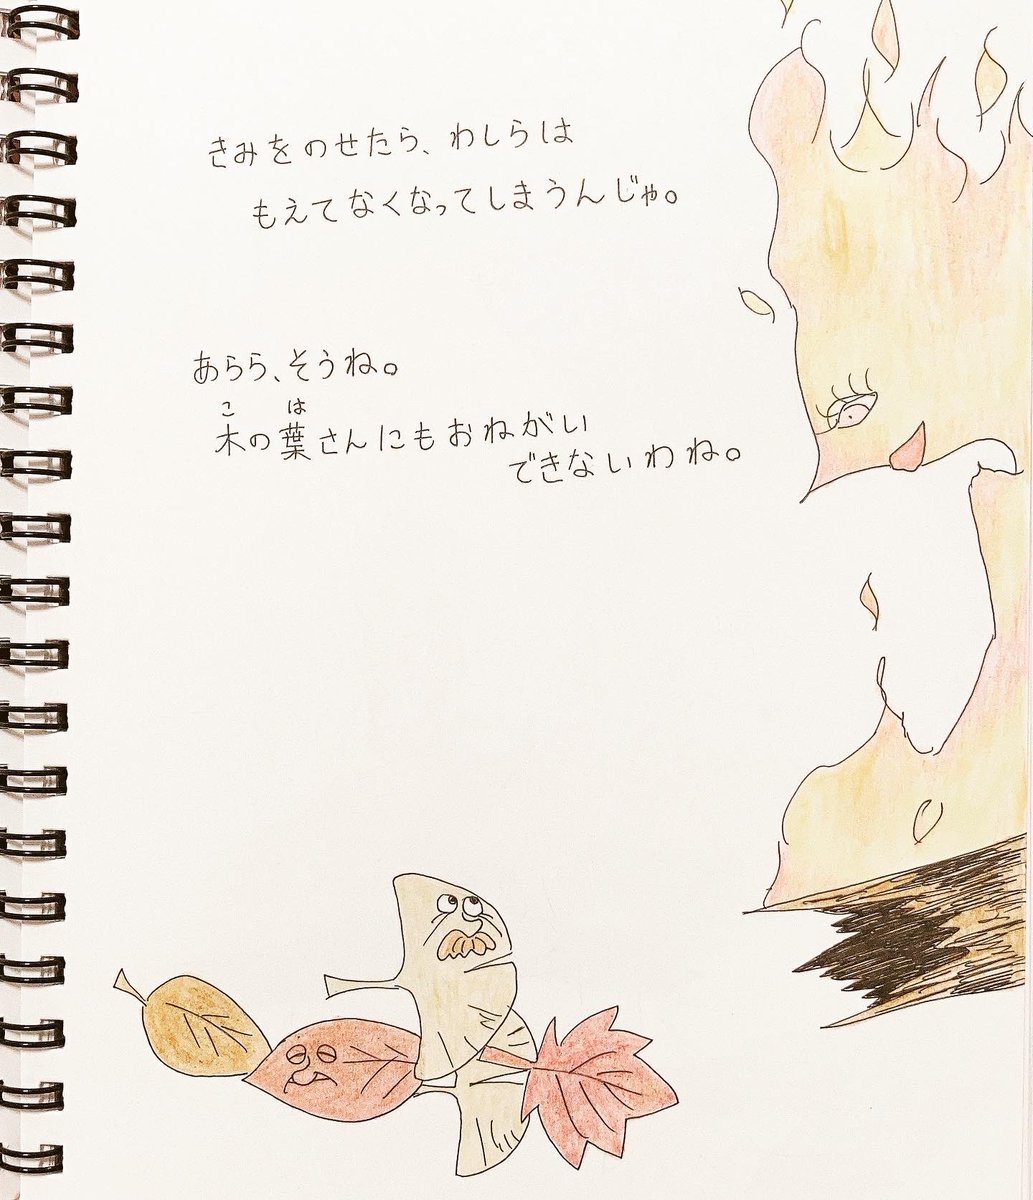 きみをのせたら、わしらは
もえてなくなってしまうんじゃ。
あらら、そうね。
木の葉さんにもおねがい
できないわね。